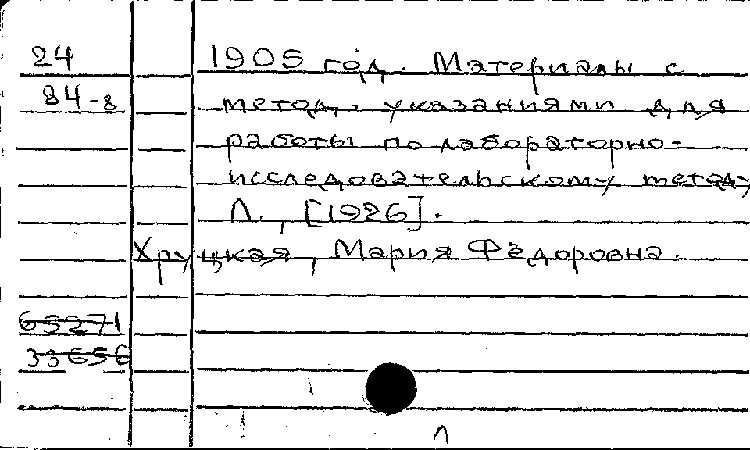 24
84-8
1905 год. Материалы с
метод. указаниями для
работы по лабораторно-
исследовательскому методу
Л., [1926].
Хруцкая, Мария Федоровна.
65271
33656